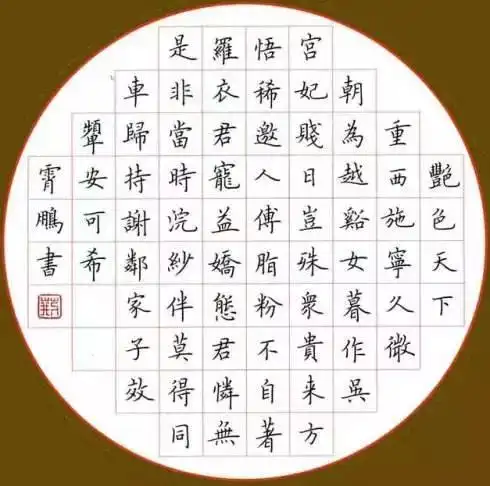 艷色天下
重西施寧久微
朝為越谿女暮作吳
宮妃賤日豈殊衆貴來方
悟稀邀人傅脂粉不自著
羅衣君寵益嬌態君憐無
是非當時浣紗伴莫得同
車歸持謝鄰家子效
顰安可希
霄鵬書